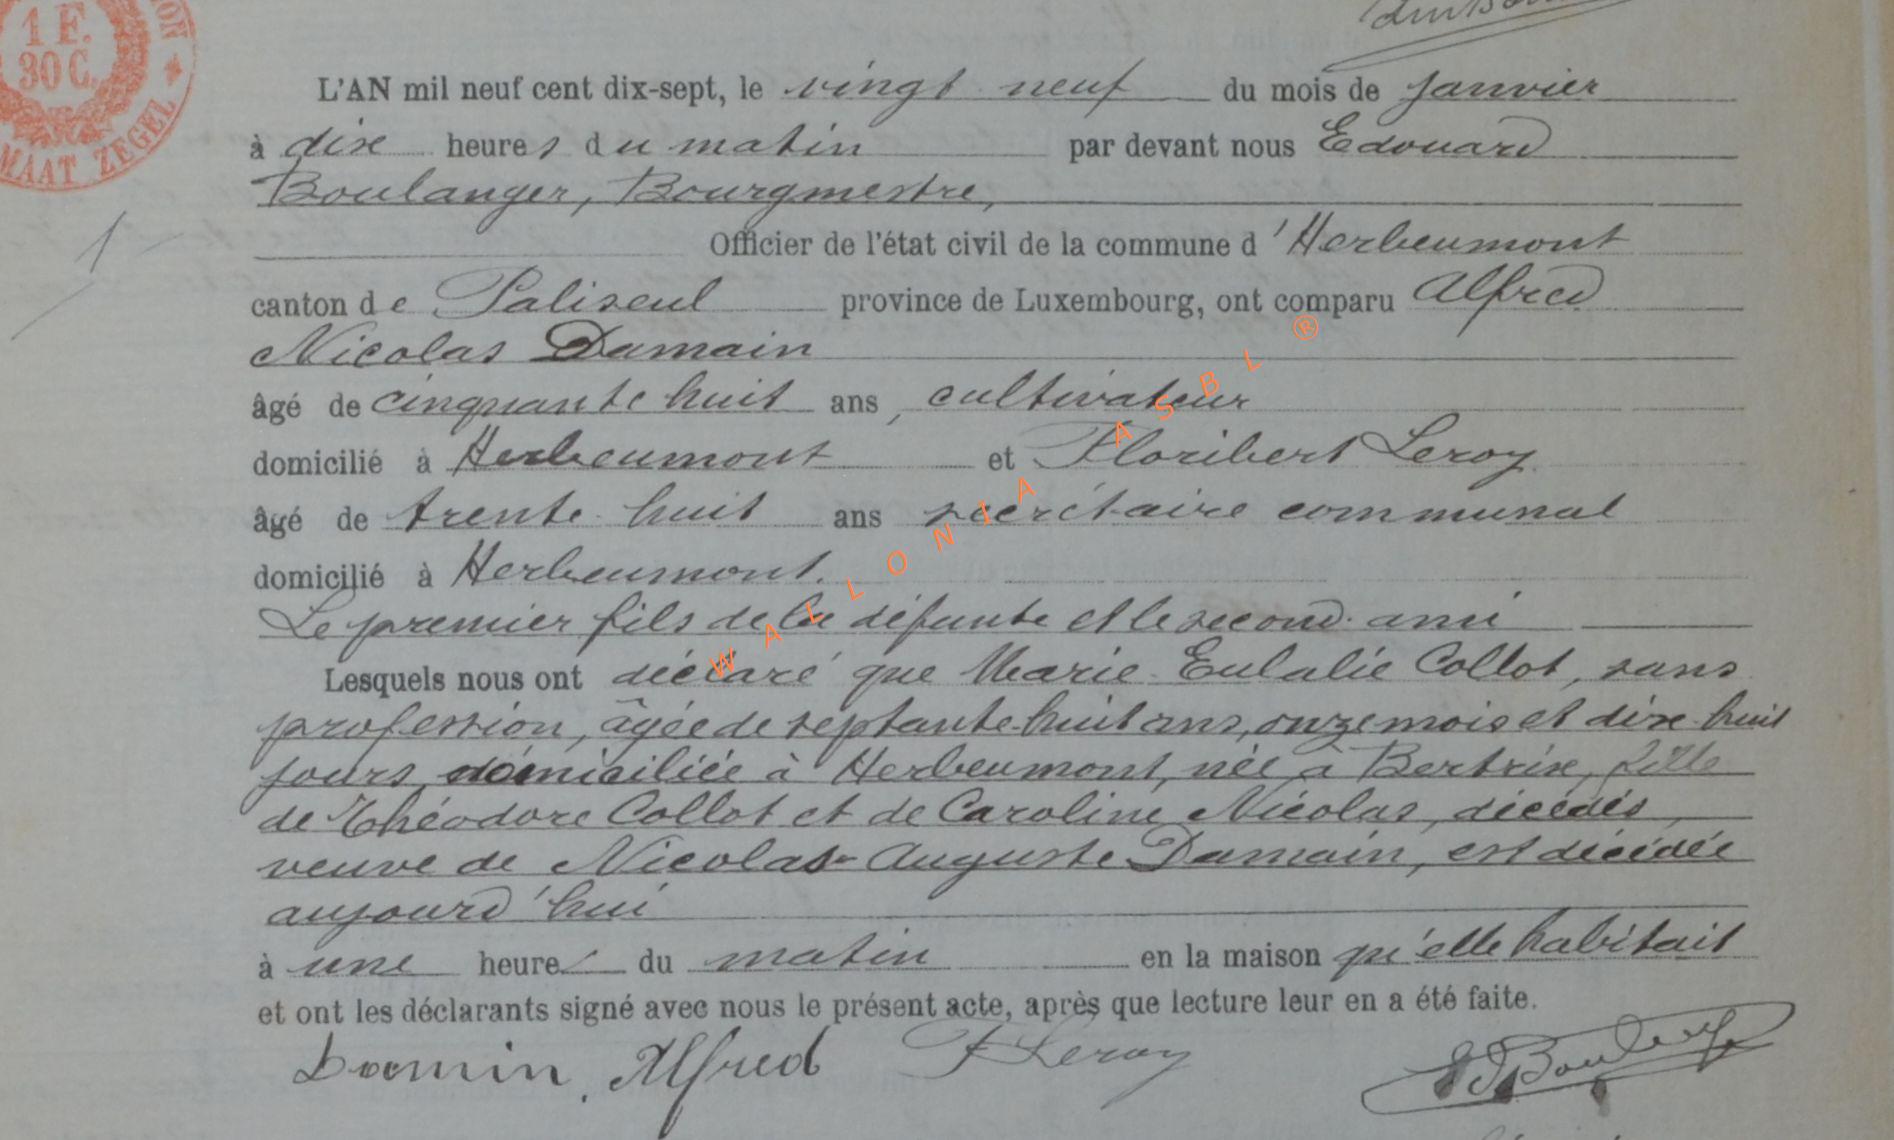 1 F.
30 C.
MAAT ZEGEL
L'AN mil neuf cent dix-sept, le vingt neuf du mois de janvier
à dix heures du matin par devant nous Edouard
Boulanger, Bourgmestre,
Officier de l'état civil de la commune d'Herbeumont
canton de Paliseul province de Luxembourg, ont comparu Alfred
Nicolas Damain
âgé de cinquante huit ans, cultivateur
domicilié à Herbeumont et Floribert Leroy
âgé de trente huit ans secrétaire communal
domicilié à Herbeumont.
Le premier fils de la défunte et le second ami
Lesquels nous ont déclaré que Marie Eulalie Collot, sans
profession, âgée de septante-huit ans, onze mois et dix-huit
jours, domiciliée à Herbeumont, née à Bertrix, fille
de Théodore Collot et de Caroline Nicolas, décédés,
veuve de Nicolas-Auguste Damain, est décédée
aujourd'hui
à une heure du matin en la maison qu'elle habitait
et ont les déclarants signé avec nous le présent acte, après que lecture leur en a été faite.
Damin, Alfred F Leroy
WALLONIA ASBL ®